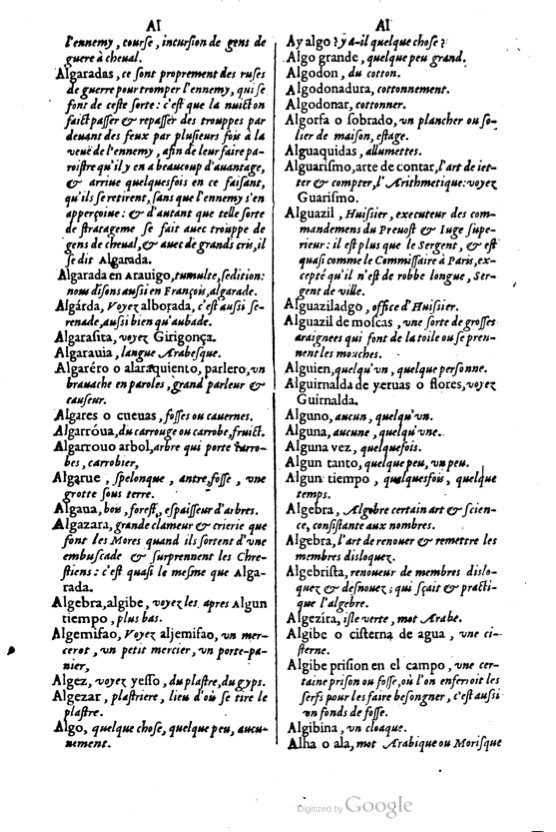 AI
l'ennemy, course, incursion de gens de
guere à cheual.
Algaradas, ce sont proprement des ruses
de guerre pour tromper l'ennemy, qui se
font de ceste sorte: c'est que la nuict on
faict passer & repasser des trouppes par
deuant des feux par plusieurs fois à la
veuë de l'ennemy, afin de leur faire pa-
roistre qu'il y en a beaucoup d'auantage,
& arriue quelquesfois en ce faisant,
qu'ils se retirent, sans que l'ennemy s'en
apperçoiue: & d'autant que telle sorte
de stratageme se fait auec trouppe de
gens de cheual, & auec de grands cris, il
se dit Algarada.
Algarada en Arauigo, tumulte, sedition:
nous disons aussi en François, algarade.
Algárda, Voyez alborada, c'est aussi se-
renade, aussi bien qu'aubade.
Algarasita, voyez Girigonça.
Algarauia, langue Arabesque.
Algaréro o alaraquiento, parlero, vn
brauache en paroles, grand parleur &
causeur.
Algares o cueuas, fosses ou cauernes.
Algarróua, du carrouge ou carrobe, fruict.
Algarrouo arbol, arbre qui porte carro-
bes, carrobier,
Algarue, spelonque, antre, fosse, vne
grotte sous terre.
Algaua, bois, forest, espaisseur d'arbres.
Algazara, grande clameur & crierie que
font les Mores quand ils sortent d'vne
embuscade & surprennent les Chre-
stiens: c'est quasi le mesme que Alga-
rada.
Algebra, algibe, voyez les apres Algun
tiempo, plus bas.
Algemifao, Voyez aljemifao, vn mer-
cerot, vn petit mercier, vn porte-pa-
nier,
Algez, voyez yesso, du plastre, du gyps.
Algezar, plastriere, lieu d'où se tire le
plastre.
Algo, quelque chose, quelque peu, aucu-
nement.
AI
Ay algo? y a-il quelque chose?
Algo grande, quelque peu grand.
Algodon, du cotton.
Algodonadura, cottonnement.
Algodonar, cottonner.
Algorfa o sobrado, vn plancher ou so-
lier de maison, estage.
Alguaquidas, allumettes.
Alguarismo, arte de contar, l'art de iet-
ter & compter, l'Arithmetique: voyez
Guarismo.
Alguazil, Huissier, executeur des com-
mandemens du Preuost & Iuge supe-
rieur: il est plus que le Sergent, & est
quasi comme le Commissaire à Paris, ex-
cepté qu'il n'est de robbe longue, Ser-
gent de ville.
Alguaziladgo, office d'Huissier.
Alguazil de moscas, vne sorte de grosses
araignees qui font de la toile ou se pren-
nent les mouches.
Alguien, quelqu'vn, quelque personne.
Alguirnalda de yeruas o flores, voyez
Guirnalda.
Alguno, aucun, quelqu'vn.
Alguna, aucune, quelqu'vne.
Alguna vez, quelquefois.
Algun tanto, quelque peu, vn peu.
Algun tiempo, quelquesfois, quelque
temps.
Algebra, Algebre certain art & scien-
ce, consistante aux nombres.
Algebra, l'art de renouer & remettre les
membres disloquez.
Algebrista, renoueur de membres dislo-
quez & desnouez; qui sçait & practi-
que l'algebre.
Algezira, isle verte, mot Arabe.
Algibe o cisterna de agua, vne ci-
sterne.
Algibe prision en el campo, vne cer-
taine prison ou fosse, où l'on enfermoit les
serfs pour les faire besongner, c'est aussi
vn fonds de fosse.
Algibina, vn cloaque.
Alha o ala, mot Arabique ou Morisque
Digitized by Google